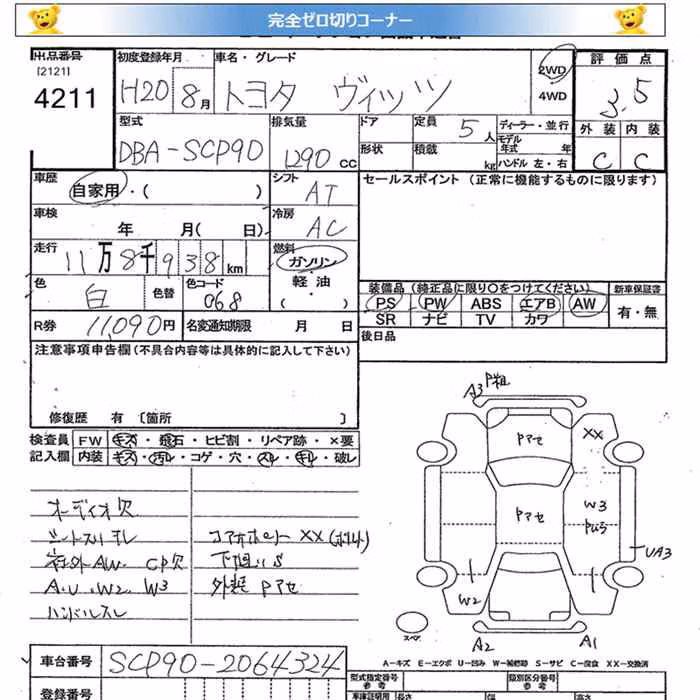 完全ゼロ切りコーナー
出品番号
[2121]
4211
初度登録年月
H20 8月
車名・グレード
トヨタ ヴィッツ
2WD
4WD
評価点
3.5
外装 内装
C C
型式
DBA-SCP90
排気量
1290cc
ドア
定員 5人
ディーラー・並行
形状
積載 kg
モデル年式 年
ハンドル 左・右
車歴
自家用・( )
シフト
AT
セールスポイント (正常に機能するものに限ります)
車検
年 月( 日)
冷房
AC
走行
11万8千938km
燃料
ガソリン
軽油
( )
色
白
色替
色コード
068
装備品(純正品に限り○をつけてください)
PS PW ABS エアB AW
SR ナビ TV カワ
新車保証書
有・無
R券 11,090円
名変通知期限 月 日
後日品
注意事項申告欄(不具合内容等は具体的に記入して下さい)
修復歴 有 〔箇所 〕
検査員
記入欄
FW キズ・飛石・ヒビ割・リペア跡・×要
内装 キズ・汚レ・コゲ・穴・スレ・キレ・破レ
オーディオ欠
シートスリキレ
社外AW、CP欠
A、U、W2、W3
ハンドルスレ
XX
下廻りS
外装Pアセ
A3 P粗
Pアセ
XX
Pアセ
W3
UA3
W2
スペア
A2
A1
A-キズ E-エクボ U-凹み W-補修跡 S-サビ C-腐食 XX-交換済
車台番号 SCP90-2064324
登録番号
型式指定番号
参考
類別区分番号
参考
長さ
幅
高さ